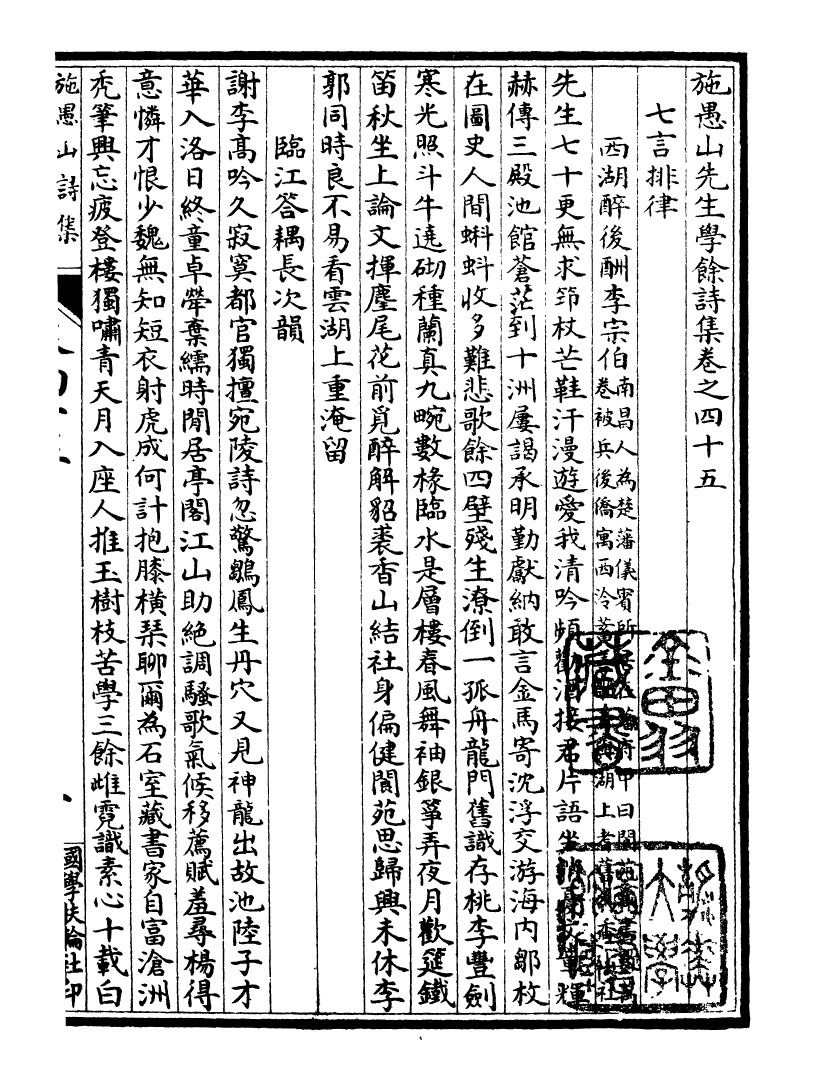 施愚山先生學餘詩集卷之四十五
七言排律
西湖醉後酬李宗伯南昌人為楚藩儀賓所
卷被兵後僑寓西泠湖上耆舊香山社
先生七十更無求笻杖芒鞋汗漫遊愛我清吟頻勸酒接君片語坐輝
赫傳三殿池館蒼茫到十洲屢謁承明勤獻納敢言金馬寄沈浮交游海內鄒枚
在圖史人間蝌蚪收多難悲歌餘四壁殘生潦倒一孤舟龍門舊識存桃李豐劍
寒光照斗牛遶砌種蘭真九畹數椽臨水是層樓春風舞袖銀箏弄夜月歡筵鐵
笛秋坐上論文揮麈尾花前覓醉解貂裘香山結社身偏健閬苑思歸興未休李
郭同時良不易看雲湖上重淹留
臨江荅耦長次韻
謝李高吟久寂寞都官獨擅宛陵詩忽驚鶵鳳生丹穴又見神龍出故池陸子才
華入洛日終童卓犖棄繻時閒居亭閣江山助絕調騷歌氣候移薦賦羞尋楊得
意憐才恨少魏無知短衣射虎成何計抱膝橫琴聊爾為石室藏書家自富滄洲
禿筆興忘疲登樓獨嘯青天月入座人推玉樹枝苦學三餘雌霓識素心十載白
施愚山詩集
國學扶輪社印